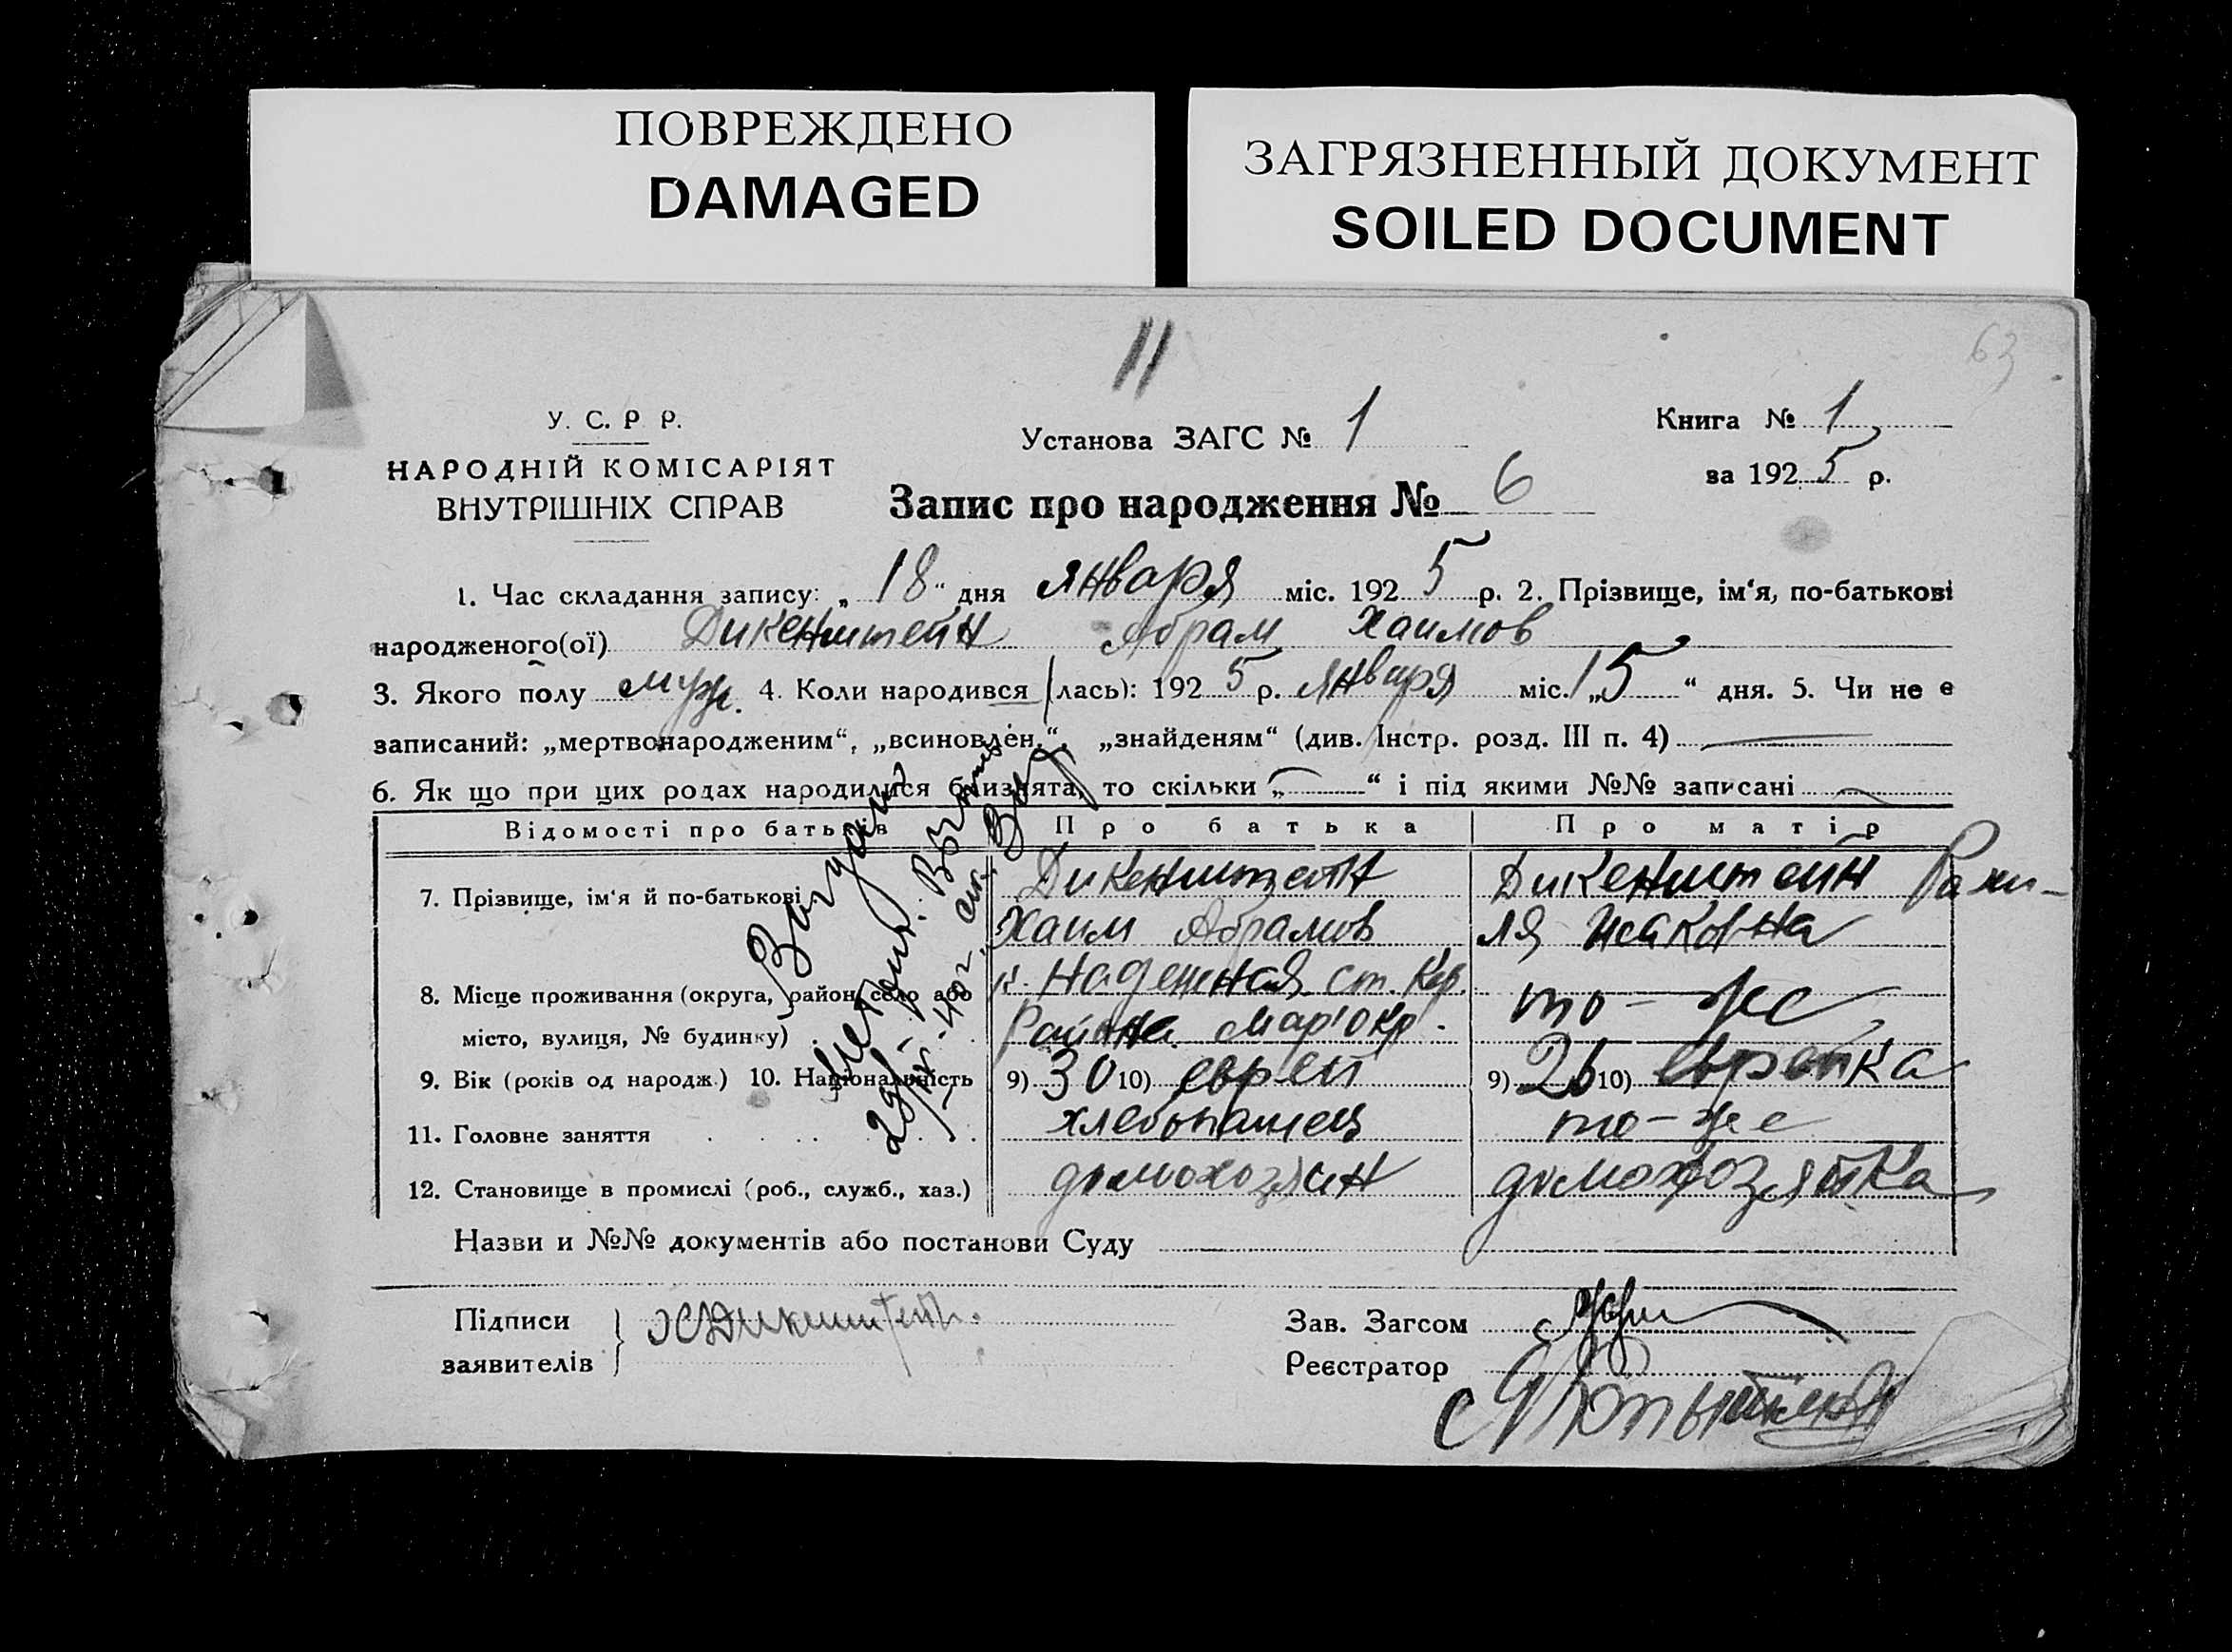 ПОВРЕЖДЕНО
DAMAGED
ЗАГРЯЗНЕННЫЙ ДОКУМЕНТ
SOILED DOCUMENT
11
63
У. С. Р Р.
НАРОДНІЙ КОМІСАРІЯТ
ВНУТРІШНІХ СПРАВ
Установа ЗАГС № 1
Книга № 1
за 1925 р.
Запис про народження № 6
1. Час складання запису: „18“ дня января міс. 1925 р. 2. Прізвище, ім‘я, по-батькові
народженого(ої) Дикенштейн Абрам Хаимов
3. Якого полу муж. 4. Коли народився (лась): 1925 р. января міс. „15“ дня. 5. Чи не є
записаний: „мертвонародженим“, „всиновлен.“, „знайденям“ (див. Інстр. розд. III п. 4)
6. Як що при цих родах народилися близнята, то скільки „ “ і під якими №№ записані
Відомості про батьків
Про батька
Про матір
7. Прізвище, ім‘я й по-батькові
Дикенштейн
Хаим Абрамов
Дикенштейн Рахи-
ля Исаковна
8. Місце проживання (округа, район, село або
місто, вулиця, № будинку)
к. Надежная ст. Кер.
Района Мар'окр.
то-же
9. Вік (років од народж.) 10. Національність
9) 30 10) еврей
9) 26 10) еврейка
11. Головне заняття
хлебопашец
то-же
12. Становище в промислі (роб., служб., хаз.)
домохозяин
домохозяйка
Выдан
Назви и №№ документів або постанови Суду
Підписи
заявителів
Х Дикенштейн.
Зав. Загсом
Реєстратор